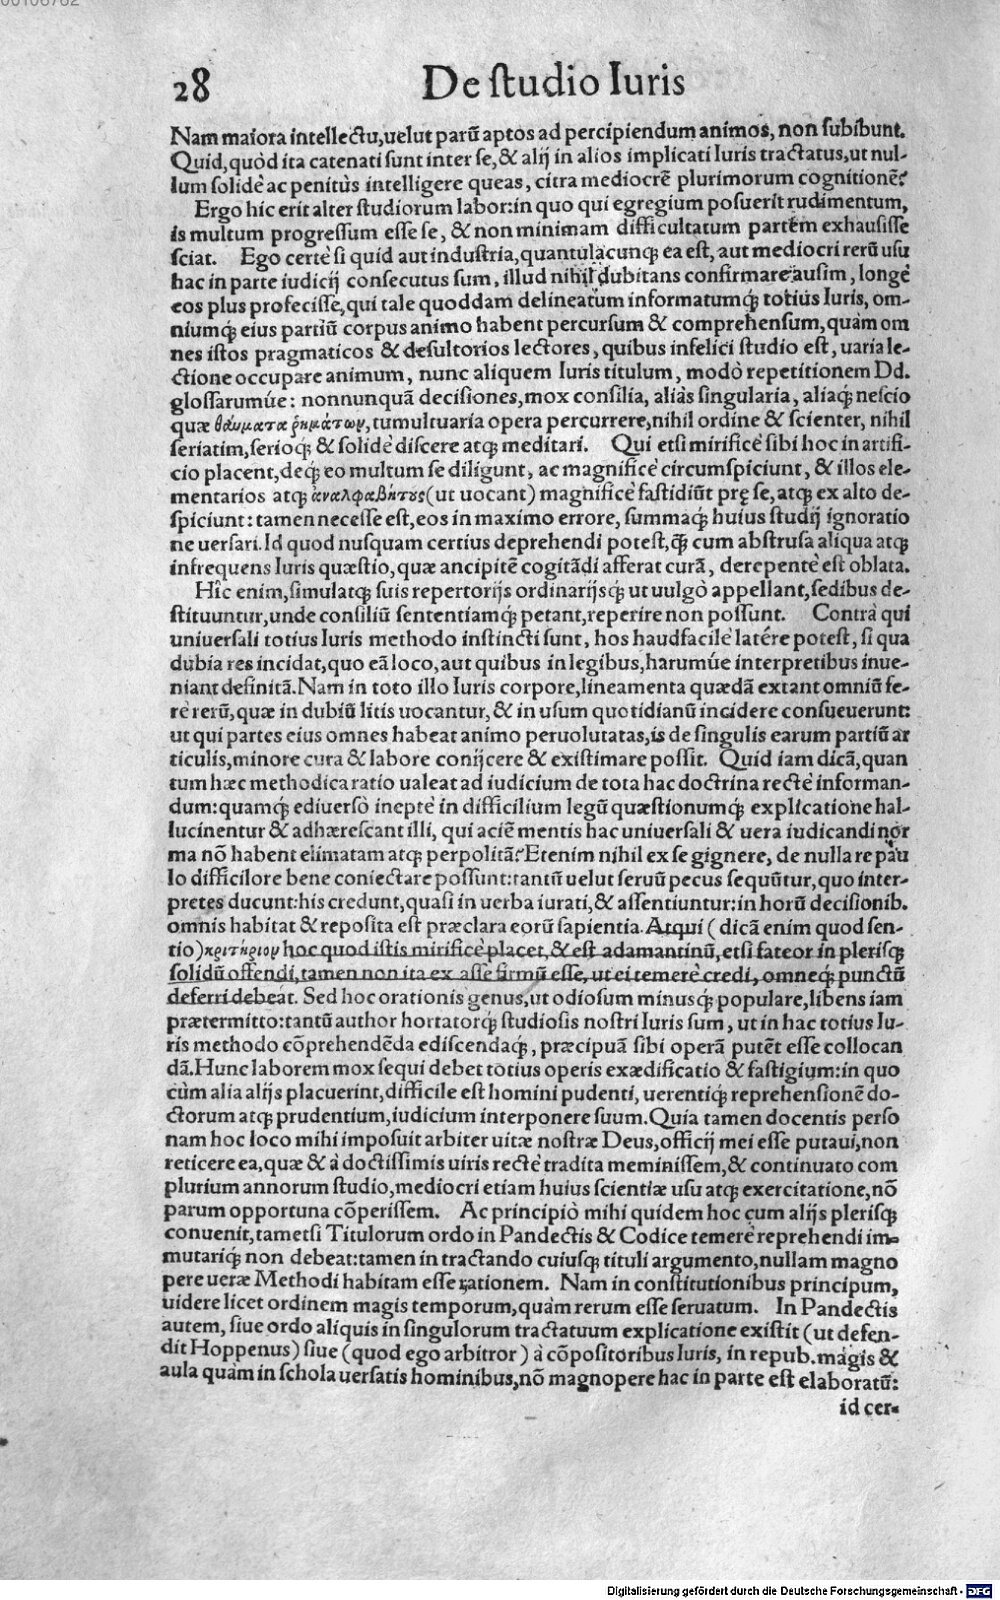 28 De ſtudio Iuris
Nam maiora intellectu,uelut parū aptos ad percipiendum animos, non ſubibunt.
Quid,quòd ita catenati ſunt inter ſe,& alij in alios implicati Iuris tractatus,ut nul-
lum ſolidè ac penitùs intelligere queas, citra mediocrē plurimorum cognitionē?
Ergo hic erit alter ſtudiorum labor:in quo qui egregium poſuerit rudimentum,
is multum progreſſum eſſe ſe, & non minimam difficultatum partem exhauſiſſe
ſciat. Ego certè ſi quid aut induſtria,quantulacunq; ea eſt, aut mediocri rerū uſu
hac in parte iudicij conſecutus ſum, illud nihil dubitans confirmare auſim, longè
eos plus profeciſſe,qui tale quoddam delineatum informatumq́; totius Iuris, om-
niumq́; eius partiū corpus animo habent percurſum & comprehenſum,quàm om
nes iſtos pragmaticos & deſultorios lectores, quibus infelici ſtudio eſt, uaria le-
ctione occupare animum, nunc aliquem Iuris titulum, modò repetitionem Dd.
gloſſarumúe: nonnunquā deciſiones,mox conſilia, aliàs ſingularia, aliaq́; neſcio
quæ θαύματα ῥημάτων, tumultuaria opera percurrere,nihil ordine & ſcienter, nihil
ſeriatim,ſerioq́; & ſolidè diſcere atq; meditari. Qui etſi mirificè ſibi hoc in artifi-
cio placent,deq́; eo multum ſe diligunt, ac magnificè circumſpiciunt, & illos ele-
mentarios atq; ἀναλφαβήτους (ut uocant) magnificè faſtidiūt prę ſe,atq; ex alto de-
ſpiciunt: tamen neceſſe eſt, eos in maximo errore, ſummaq́; huius ſtudij ignoratio
ne uerſari. Id quod nuſquam certius deprehendi poteſt,q̄; cum abſtruſa aliqua atq;
infrequens Iuris quæſtio, quæ ancipitē cogitādi afferat curā, derepentè eſt oblata.
Hîc enim,ſimulatq; ſuis repertorijs ordinarijsq́; ut uulgò appellant,ſedibus de-
ſtituuntur,unde conſiliū ſententiamq́; petant,reperire non poſſunt. Contrà qui
uniuerſali totius Iuris methodo inſtincti ſunt, hos haudfacilè latére poteſt, ſi qua
dubia res incidat,quo eā loco, aut quibus in legibus,harumúe interpretibus inue-
niant definitā. Nam in toto illo Iuris corpore,lineamenta quædā extant omniū fe-
rè rerū, quæ in dubiū litis uocantur, & in uſum quotidianū incidere conſueuerunt:
ut qui partes eius omnes habeat animo peruolutatas,is de ſingulis earum partiū ar
ticulis,minore cura & labore conijcere & exiſtimare poſsit. Quid iam dicā,quan
tum hæc methodica ratio ualeat ad iudicium de tota hac doctrina rectè informan-
dum:quamq́; ediuerſò ineptè in difficilium legū quæſtionumq́; explicatione hal-
lucinentur & adhæreſcant illi, qui aciē mentis hac uniuerſali & uera iudicandi nor
ma nō habent elimatam atq; perpolitā? Etenim nihil ex ſe gignere, de nulla re pau
lo difficilore bene coniectare poſſunt:tantū uelut ſeruū pecus ſequūtur,quo inter-
pretes ducunt:his credunt,quaſi in uerba iurati,& aſſentiuntur:in horū deciſionib.
omnis habitat & repoſita eſt præclara eorū ſapientia. Atqui ( dicā enim quod ſen-
tio) κριτήριον hoc quod iſtis mirificè placet, & eſt adamantinū, etſi fateor in pleriſq;
ſolidū offendi, tamen non ita ex aſſe firmū eſſe, ut ei temerè credi, omneq́; punctū
deferri debeat. Sed hoc orationis genus,ut odioſum minusq́; populare,libens iam
prætermitto:tantū author hortatorq́; ſtudioſis noſtri Iuris ſum, ut in hac totius Iu-
ris methodo cōprehendēda ediſcendaq́;, præcipuā ſibi operā putēt eſſe collocan
dā. Hunc laborem mox ſequi debet totius operis exædificatio & faſtigium:in quo
cùm alia alijs placuerint,difficile eſt homini pudenti, uerentiq́; reprehenſionē do-
ctorum atq; prudentium,iudicium interponere ſuum. Quia tamen docentis perſo
nam hoc loco mihi impoſuit arbiter uitæ noſtræ Deus,officij mei eſſe putaui,non
reticere ea, quæ & à doctiſsimis uiris rectè tradita meminiſſem,& continuato com
plurium annorum ſtudio,mediocri etiam huius ſcientiæ uſu atq; exercitatione,nō
parum opportuna cōperiſſem. Ac principiò mihi quidem hoc cum alijs pleriſq;
conuenit,tametſi Titulorum ordo in Pandectis & Codice temerè reprehendi im-
mutariq́; non debeat:tamen in tractando cuiuſq; tituli argumento,nullam magno
pere ueræ Methodi habitam eſſe rationem. Nam in conſtitutionibus principum,
uidere licet ordinem magis temporum,quàm rerum eſſe ſeruatum. In Pandectis
autem, ſiue ordo aliquis in ſingulorum tractatuum explicatione exiſtit (ut defen-
dit Hoppenus) ſiue (quod ego arbitror) à cōpoſitoribus Iuris, in repub. magis &
aula quàm in ſchola uerſatis hominibus,nō magnopere hac in parte eſt elaboratū:
id cer-
Digitalisierung gefördert durch die Deutsche Forschungsgemeinschaft - DFG